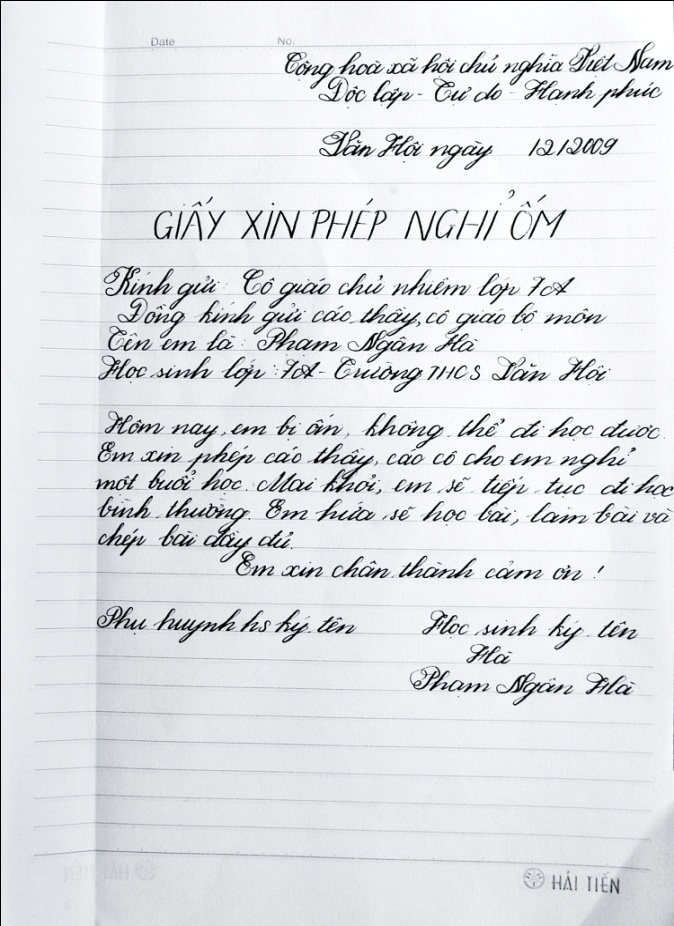 Date No.
Cộng hoà xã hội chủ nghĩa Việt Nam
Độc lập - Tự do - Hạnh phúc
Văn Hội ngày 12/2009
GIẤY XIN PHÉP NGHỈ ỐM
Kính gửi: Cô giáo chủ nhiệm lớp 7A
Đồng kính gửi các thầy, cô giáo bộ môn
Tên em là: Phạm Ngân Hà
Học sinh lớp: 7A - Trường THCS Văn Hội
Hôm nay, em bị ốn, không thể đi học được.
Em xin phép các thầy, các cô cho em nghỉ
một buổi học. Mai khỏi, em sẽ tiếp tục đi học
bình thường. Em hứa sẽ học bài, làm bài và
chép bài đầy đủ.
Em xin chân thành cảm ơn!
Phụ huynh hs ký tên Học sinh ký tên
Hà
Phạm Ngân Hà
HẢI TIẾN